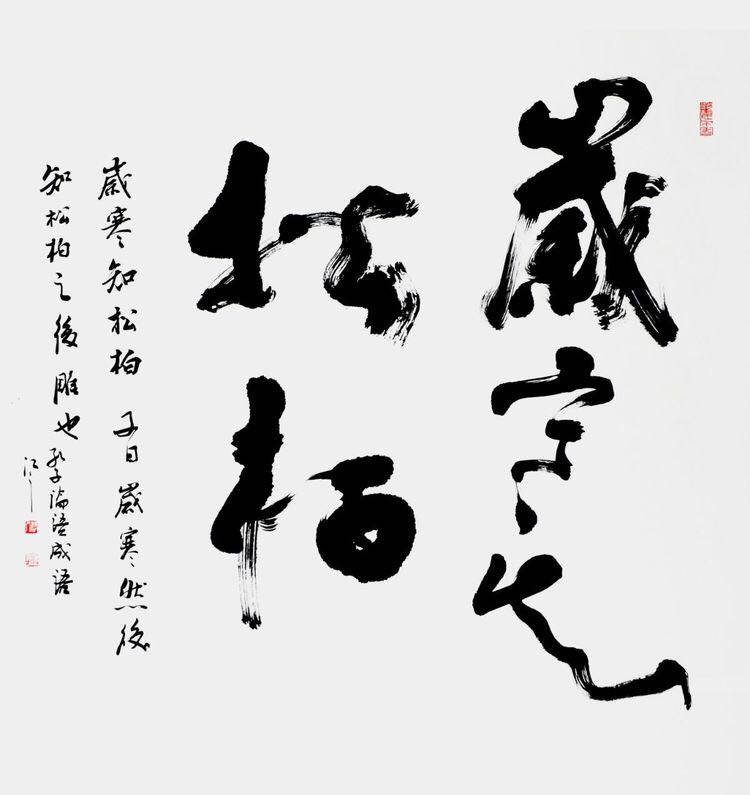 歲寒知
松柏
歲寒知松柏 子曰歲寒然後
知松柏之後雕也 孔子論語成語